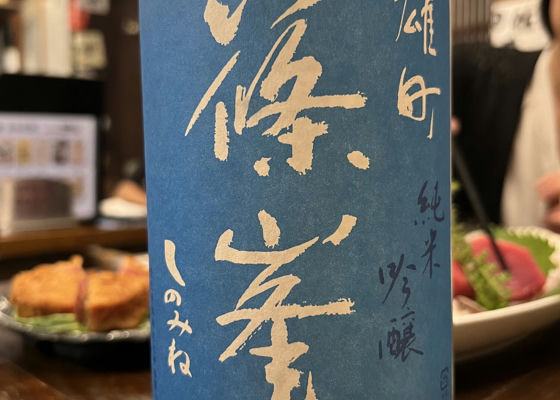 篠峯
しのみね
雄町
純米
吟醸